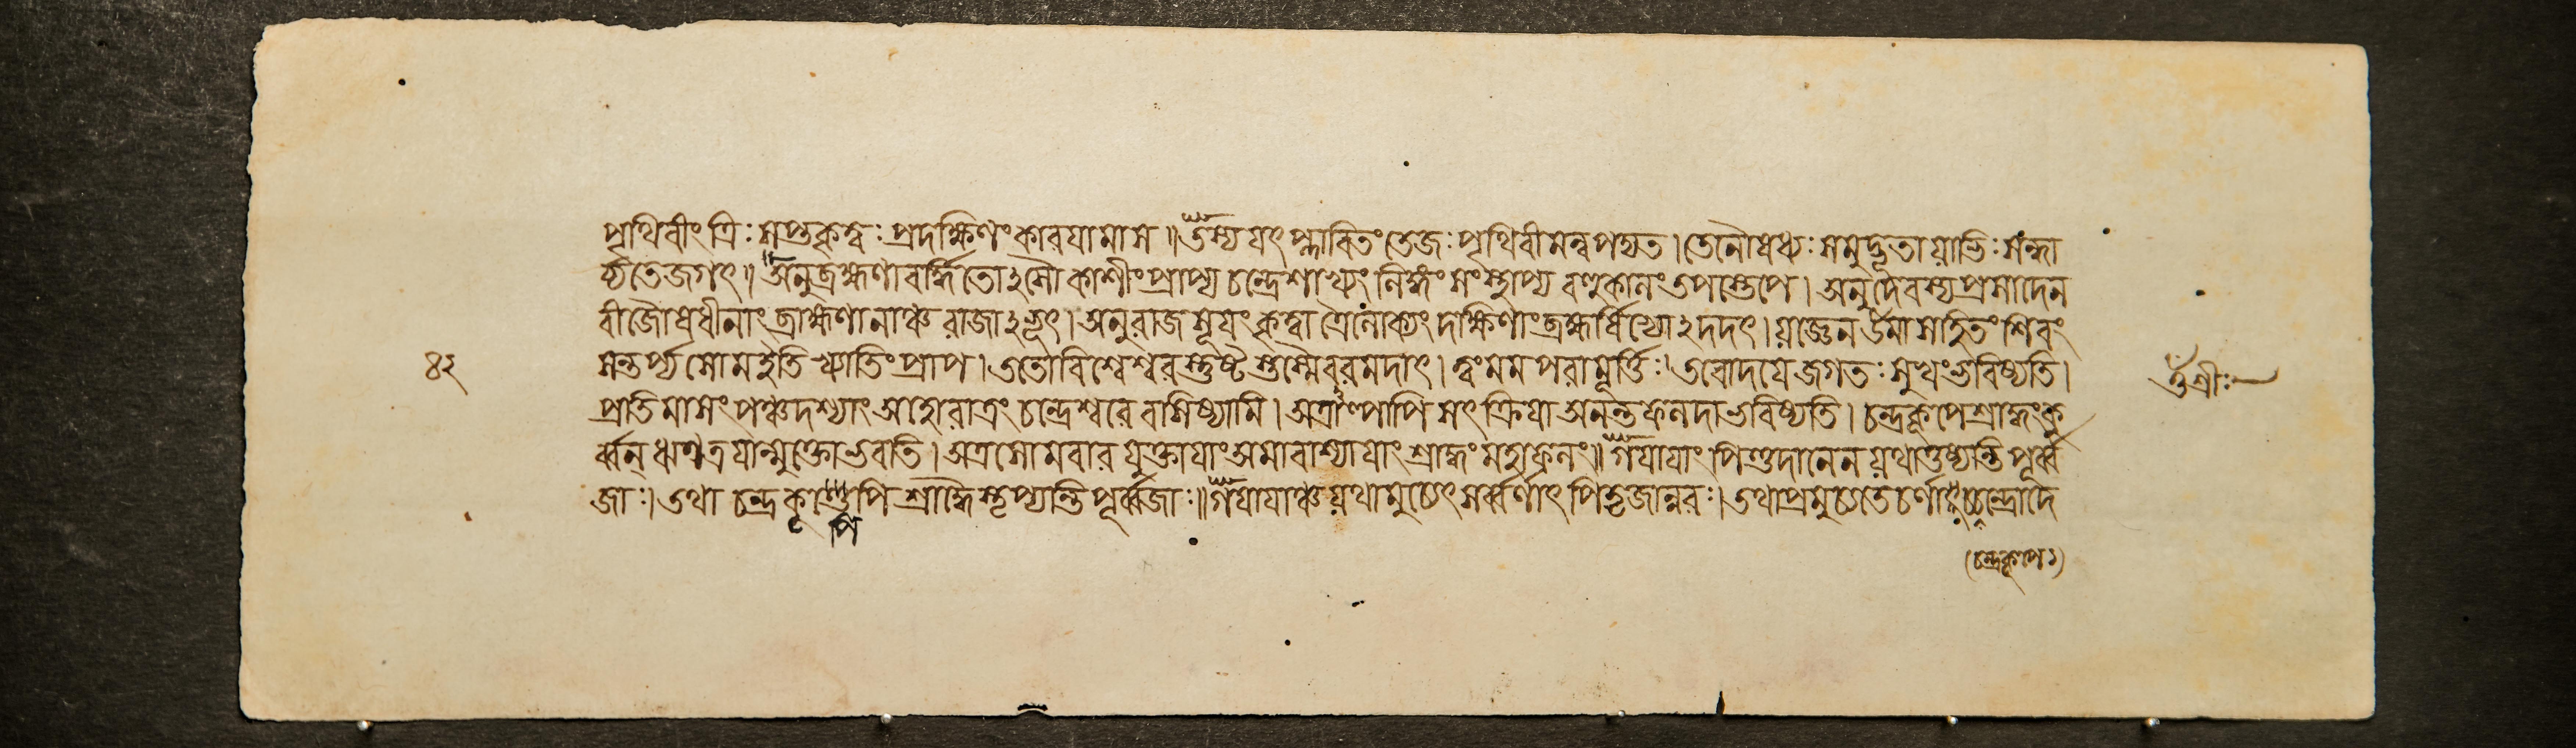 পৃথিবীং ত্রিঃ সপ্তকৃত্বঃ প্রদক্ষিণং কারযামাস ॥ তস্য যৎ প্লাবিতং তেজঃ পৃথিবীমন্বপদ্যত । তেনৌষধ্যঃ সমুদ্ভূতা য়াভিঃ সন্ধা
র্য্যতে জগৎ ॥ অনু ব্রহ্মণা বর্দ্ধিতোঽসৌ কাশীং প্রাপ্য চন্দ্রেশাখ্যং লিঙ্গং সংস্থাপ্য বহুকালং তপস্তেপে । অনু দেবস্য প্রসাদেন
বীজৌষধীনাং ব্রাহ্মণানাঞ্চ রাজাঽভূৎ । অনু রাজসূযং কৃত্বা ত্রৈলোক্যং দক্ষিণাং ব্রহ্মর্ষিভ্যোঽদদৎ । য়জ্ঞেন উমাসহিতং শিবং
সন্তর্প্য সোম ইতি খ্যাতিং প্রাপ । ততো বিশ্বেশ্বরস্তুষ্টস্তস্মৈ বরমদাৎ । ত্বং মম পরামূর্ত্তিঃ । তবোদযে জগতঃ সুখং ভবিষ্যতি ।
৪২
ওঁ শ্রীঃ
প্রতিমাসং পঞ্চদশ্যাং অহোরাত্রং চন্দ্রেশ্বরে বসিষ্যামি । অত্রাল্পাপি সৎক্রিযা অনন্তফলদা ভবিষ্যতি । চন্দ্রকূপে শ্রাদ্ধং কু
র্ব্বন্ ঋণত্রযান্মুক্তো ভবতি । অত্র সোমবারযুক্তাযাং অমাবাশ্যাযাং শ্রাদ্ধং মহাফলং ॥ গযাযাং পিণ্ডদানেন য়থা তুষ্যন্তি পূর্ব্ব
জাঃ । তথা চন্দ্রকূণ্ডেপি শ্রাদ্ধৈস্তৃপ্যন্তি পূর্ব্বজাঃ ॥ গযাযাঞ্চ য়থা মুচ্যেৎ সর্ব্বর্ণাৎ পিতৃজান্নরঃ । তথা প্রমুচ্যতে চর্ণাৎ চন্দ্রোদে
পি
(চন্দ্রকূপঃ)